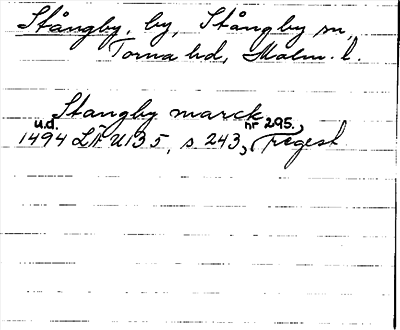 Stångby, by, Stångby sn,
Torna hd, Malm. l.
Stangby marck
u.d. nr 295.,
1494 LÄU 135, s. 243, Tregest